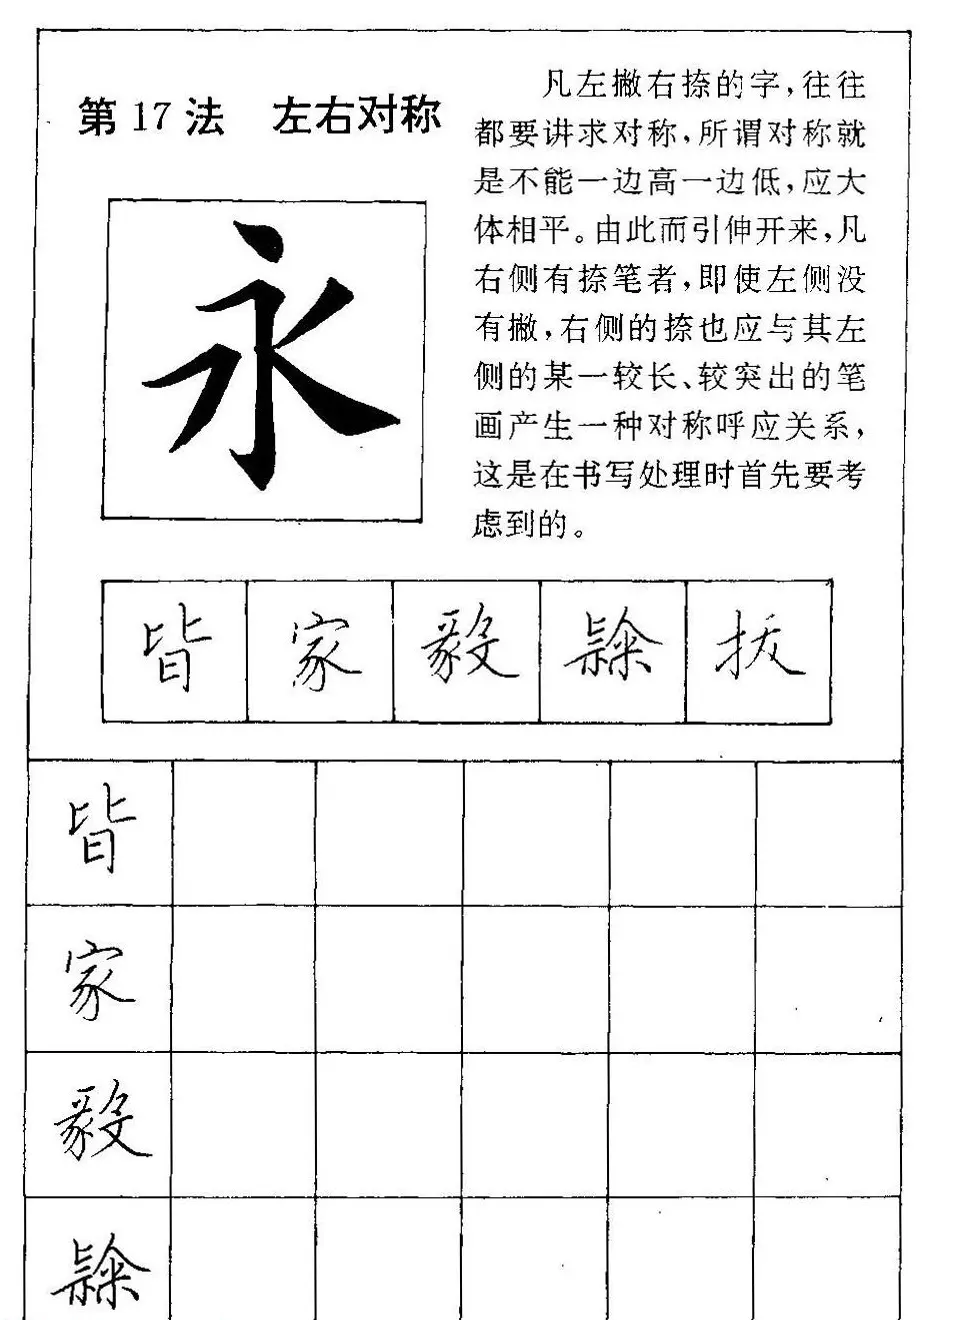 第17法 左右对称
凡左撇右捺的字,往往
都要讲求对称,所谓对称就
是不能一边高一边低,应大
体相平。由此而引伸开来,凡
右侧有捺笔者,即使左侧没
有撇,右侧的捺也应与其左
侧的某一较长、较突出的笔
画产生一种对称呼应关系,
这是在书写处理时首先要考
虑到的。
永
皆 家 毅 拔
皆
家
毅